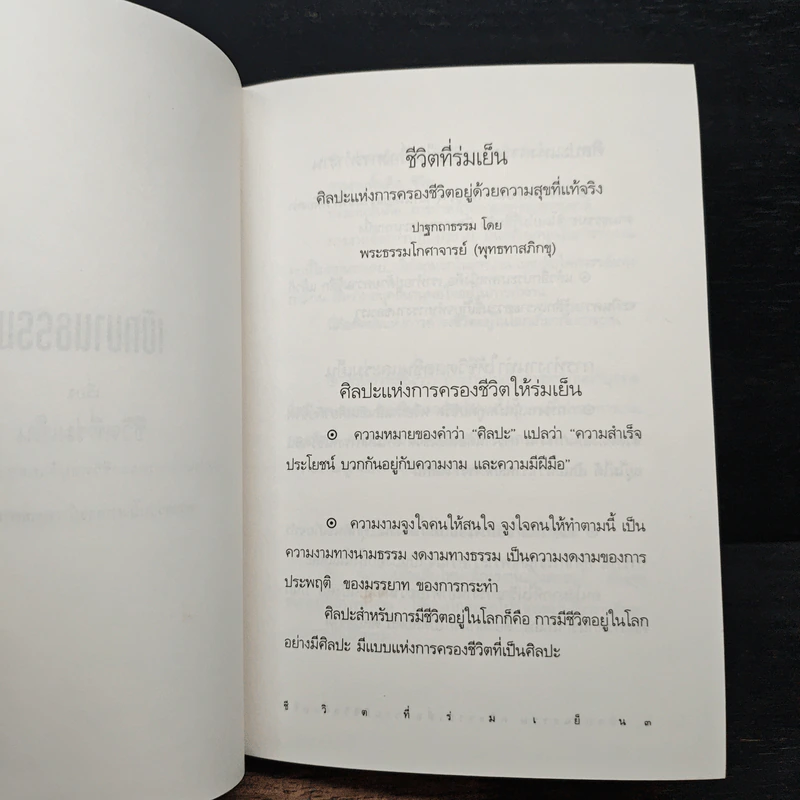 ชีวิตที่ร่มเย็น
ศิลปะแห่งการครองชีวิตอยู่ด้วยความสุขที่แท้จริง
ปาฐกถาธรรม โดย
พระธรรมโกศาจารย์ (พุทธทาสภิกขุ)
ศิลปะแห่งการครองชีวิตให้ร่มเย็น
⊙ ความหมายของคำว่า "ศิลปะ" แปลว่า "ความสำเร็จ
ประโยชน์ บวกกันอยู่กับความงาม และความมีฝีมือ"
⊙ ความงามจูงใจคนให้สนใจ จูงใจคนให้ทำตามนี้ เป็น
ความงามทางนามธรรม งดงามทางธรรม เป็นความงดงามของการ
ประพฤติ ของมรรยาท ของการกระทำ
ศิลปะสำหรับการมีชีวิตอยู่ในโลกก็คือ การมีชีวิตอยู่ในโลก
อย่างมีศิลปะ มีแบบแห่งการครองชีวิตที่เป็นศิลปะ
ชี วิ ต ที่ ร่ ม เ ย็ น ๓